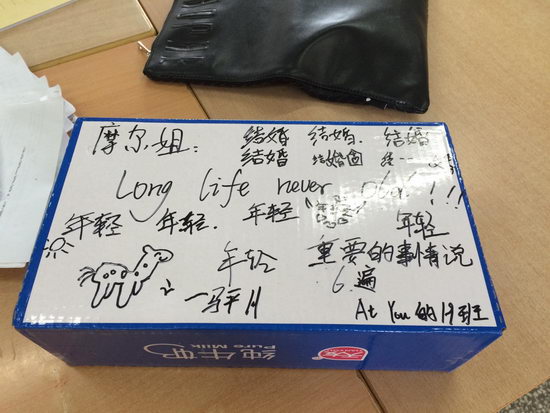 摩尔姐： 结婚 结婚. 结婚
结婚 结婚
Long life never old!!!
年轻 年轻. 年轻 年轻
年轻 重要的事情说
6.遍
At You 的19班
纯牛奶
Pure Milk